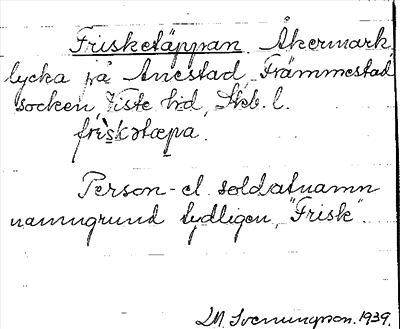 Frisketäppan. Åkermark,
lycka på Anestad, Främmestad
socken, Viste hd, Skb. l.
friskətæpa.
Person- el. soldatnamn
namngrund tydligen, "Frisk".
LM. Svenungson. 1939.